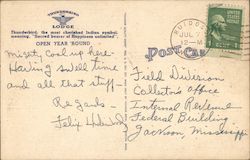 THUNDERBIRD
LODGE
Thunderbird, the most cherished Indian symbol,
meaning, "Sacred bearer of Happiness unlimited".
OPEN YEAR 'ROUND
RUIDOSO
JUL 7
12-M
POST CARD
Mighty Cool up here.
Having swell time
and all that stuff-
Regards-
Felix
Field Division
Collector's Office
Internal Revenue
Federal Building
Jackson, Mississippi